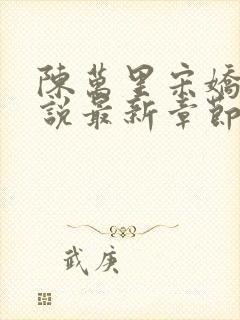 陳萬里宋嬌
說最新章節
武庚